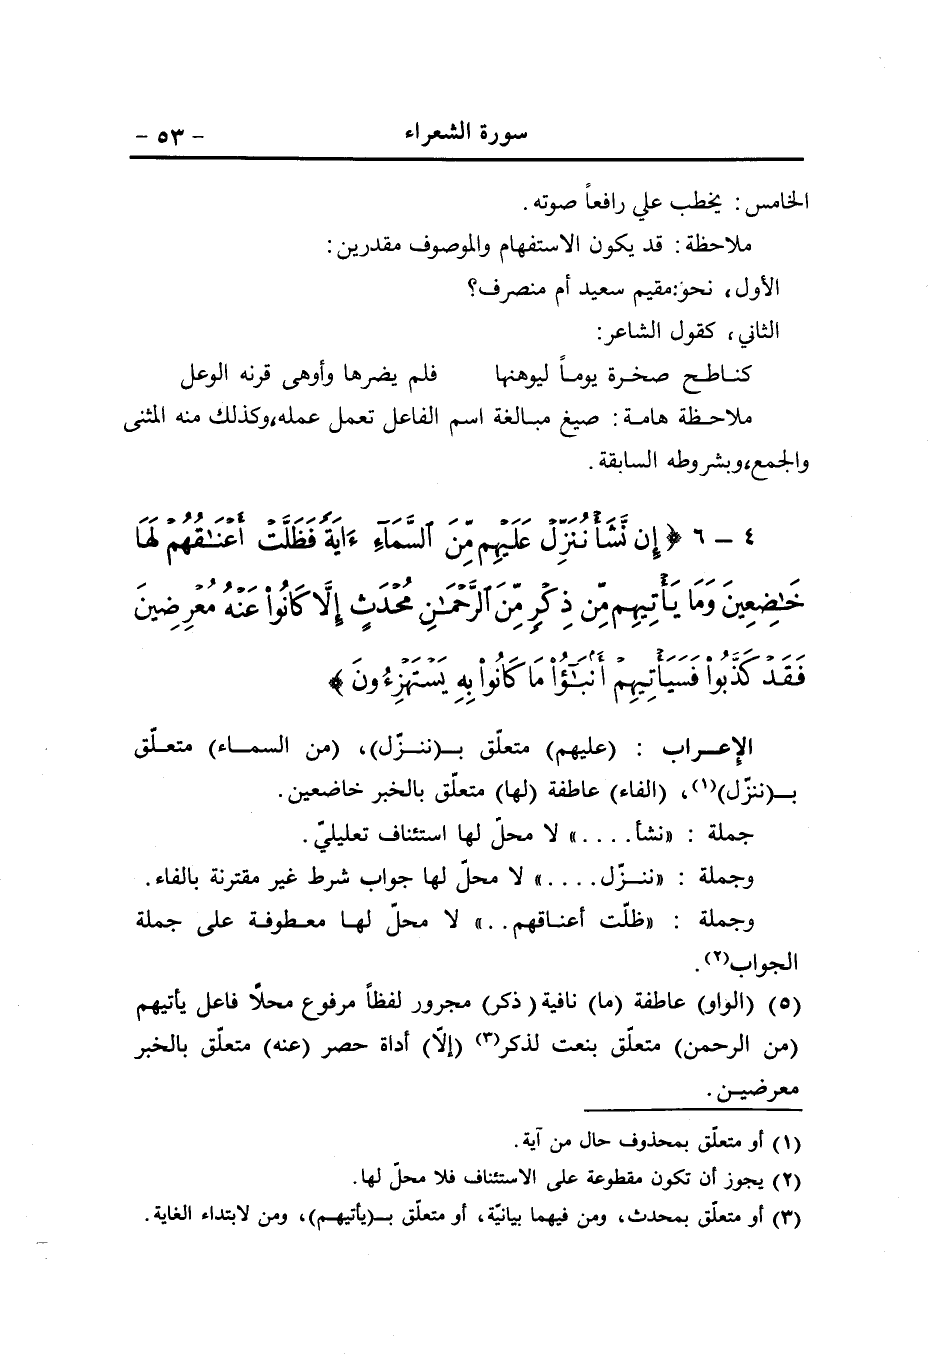 سورة الشعراء - ٥٣ -
الخامس: يخطب علي رافعاً صوته.
ملاحظة: قد يكون الاستفهام والموصوف مقدرين:
الأول، نحو:مقيم سعيد أم منصرف؟
الثاني، كقول الشاعر:
كناطح صخرة يوماً ليوهنها فلم يضرها وأوهى قرنه الوعل
ملاحظة هامة: صيغ مبالغة اسم الفاعل تعمل عمله،وكذلك منه المثنى
والجمع،وبشروطه السابقة.
٤ - ٦ ﴿إِن نَّشَأْ نُنَزِّلْ عَلَيْهِم مِّنَ ٱلسَّمَآءِ ءَايَةً فَظَلَّتْ أَعْنَٰقُهُمْ لَهَا
خَٰضِعِينَ وَمَا يَأْتِيهِم مِّن ذِكْرٍ مِّنَ ٱلرَّحْمَٰنِ مُحْدَثٍ إِلَّا كَانُوا۟ عَنْهُ مُعْرِضِينَ
فَقَدْ كَذَّبُوا۟ فَسَيَأْتِيهِمْ أَنۢبَٰٓؤُا۟ مَا كَانُوا۟ بِهِۦ يَسْتَهْزِءُونَ﴾
الإعراب : (عليهم) متعلّق بـ(ننزّل)، (من السماء) متعلّق
بـ(ننزّل)(١)، (الفاء) عاطفة (لها) متعلّق بالخبر خاضعين.
جملة : «نشأ....» لا محلّ لها استئناف تعليليّ.
وجملة : «ننزّل....» لا محلّ لها جواب شرط غير مقترنة بالفاء.
وجملة : «ظلّت أعناقهم..» لا محلّ لها معطوفة على جملة
الجواب(٢).
(٥) (الواو) عاطفة (ما) نافية (ذكر) مجرور لفظاً مرفوع محلاً فاعل يأتيهم
(من الرحمن) متعلّق بنعت لذكر(٣) (إلّا) أداة حصر (عنه) متعلّق بالخبر
معرضين.
(١) أو متعلّق بمحذوف حال من آية.
(٢) يجوز أن تكون مقطوعة على الاستئناف فلا محلّ لها.
(٣) أو متعلّق بمحدث، ومن فيهما بيانيّة، أو متعلّق بـ(يأتيهم)، ومن لابتداء الغاية.